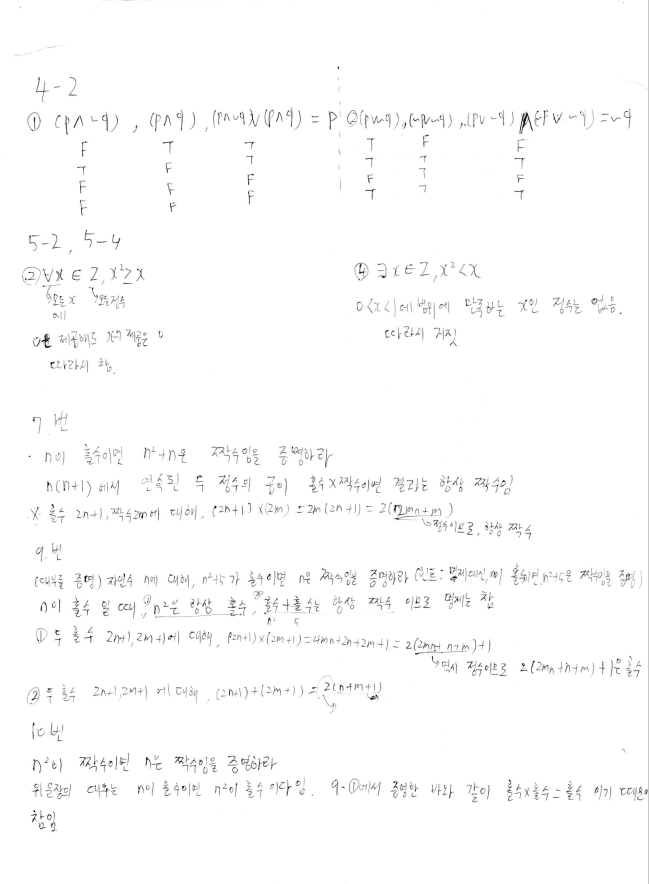 4-2
① (p∧~q) , (p∧q) , (p∧~q)∨(p∧q) = p ②(p∨~q), (~p∨~q), (p∨~q) ∧(~p∨~q) = ~q
F T T T F F
T F T T T T
F F F F T F
F F F T T T
5-2, 5-4
② ∀x ∈ Z, x²≥x
모든 x 모든 정수
all
0은 제곱해도 0
따라서 참.
④ ∃x∈Z, x²<x
0<x<1에 범위에 만족하는 x인 정수는 없음.
따라서 거짓
7번
· n이 홀수이면 n²+n은 짝수임을 증명하라
n(n+1)에서 연속된 두 정수의 곱이 홀수×짝수이면 결과는 항상 짝수임
※ 홀수 2n+1, 짝수2m에 대해, (2n+1)×(2m) = 2m(2n+1) = 2(2mn+m)
정수이므로, 항상 짝수
9번
(대우를 증명) 자연수 n에 대해, n²+5가 홀수이면 n은 짝수임을 증명하라 (힌트: 명제대신, n이 홀수이면, n²+5은 짝수임을 증명)
n이 홀수 일 때, ①n²은 항상 홀수, ②홀수+홀수는 항상 짝수 이므로 명제는 참
n² 5
① 두 홀수 2n+1, 2m+1에 대해, (2n+1)×(2m+1)=4mn+2n+2m+1=2(2mn+n+m)+1
역시 정수이므로 2(2mn+n+m)+1은 홀수
② 두 홀수 2n+1, 2m+1에 대해, (2n+1)+(2m+1)=2(n+m+1)
10번
n²이 짝수이면 n은 짝수임을 증명하라
위문장의 대우는 n이 홀수이면 n²이 홀수 이다임. 9-①에서 증명한 바와 같이 홀수×홀수=홀수 이기 때문에
참임